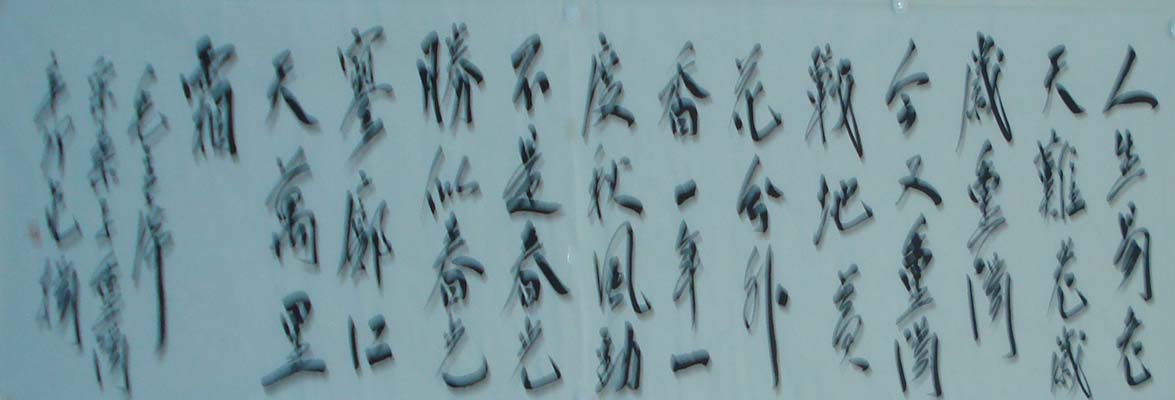 人生易老
天難老歲
歲重陽
今又重陽
戰地黃
花分外
香一年一
度秋風勁
不是春光
勝似春光
寥廓江
天萬里
霜
毛主席
采桑子重陽